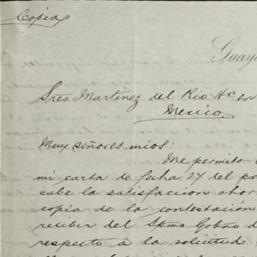 Copia
Guaya
Sres Martinez del Rio Hos en
Mexico
Muy señores mios:
Me permito
mi carta de fecha 27 del pa
cabe la satisfaccion ahor
copia de la contestación
recibir del Spmo Gobno d
respecto à la solicitud